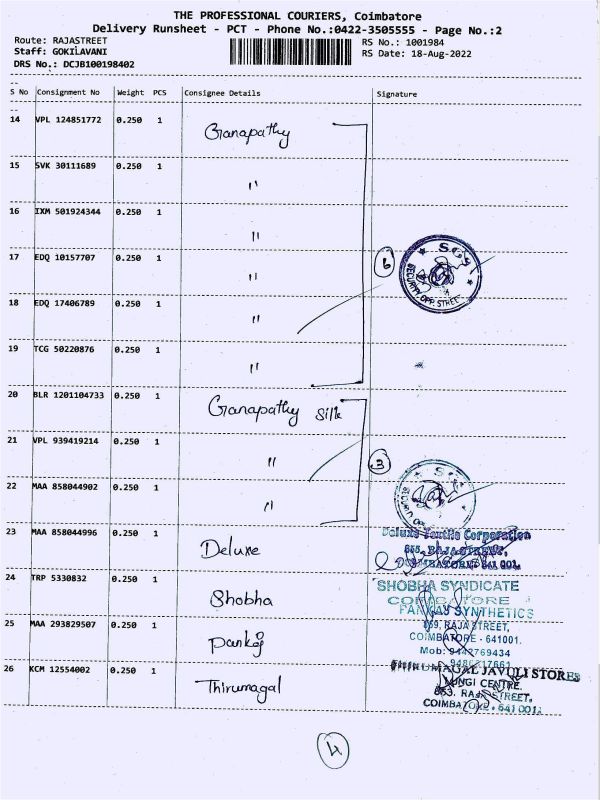 THE PROFESSIONAL COURIERS, Coimbatore
Delivery Runsheet - PCT - Phone No.:0422-3505555 - Page No.:2
Route: RAJASTREET
RS No.: 1001984
Staff: GOKILAVANI
RS Date: 18-Aug-2022
DRS No.: DCJB100198402
S No Consignment No Weight PCS Consignee Details Signature
14 VPL 124851772 0.250 1 Ganapathy
15 SVK 30111689 0.250 1 "
16 IXM 501924344 0.250 1 "
17 EDQ 10157707 0.250 1 "
6
SECURITY OPP. STREET
18 EDQ 17406789 0.250 1 "
19 TCG 50220876 0.250 1 "
20 BLR 1201104733 0.250 1 Ganapathy Silk
21 VPL 939419214 0.250 1 "
3
22 MAA 858044902 0.250 1 "
23 MAA 858044996 0.250 1 Deluxe
Deluxe Textile Corporation
RAJA STREET,
COIMBATORE 641 001.
24 TRP 5330832 0.250 1 Shobha
SHOBHA SYNDICATE
COIMBATORE
PANKAJ SYNTHETICS
25 MAA 293829507 0.250 1 Pankaj
869, RAJA STREET,
COIMBATORE - 641001.
Mob: 9442769434
26 KCM 12554002 0.250 1 Thirumagal
THIRUMAGAL JAVULI STORES
LUNGI CENTRE,
853. RAJA STREET,
COIMBATORE - 641 001.
4